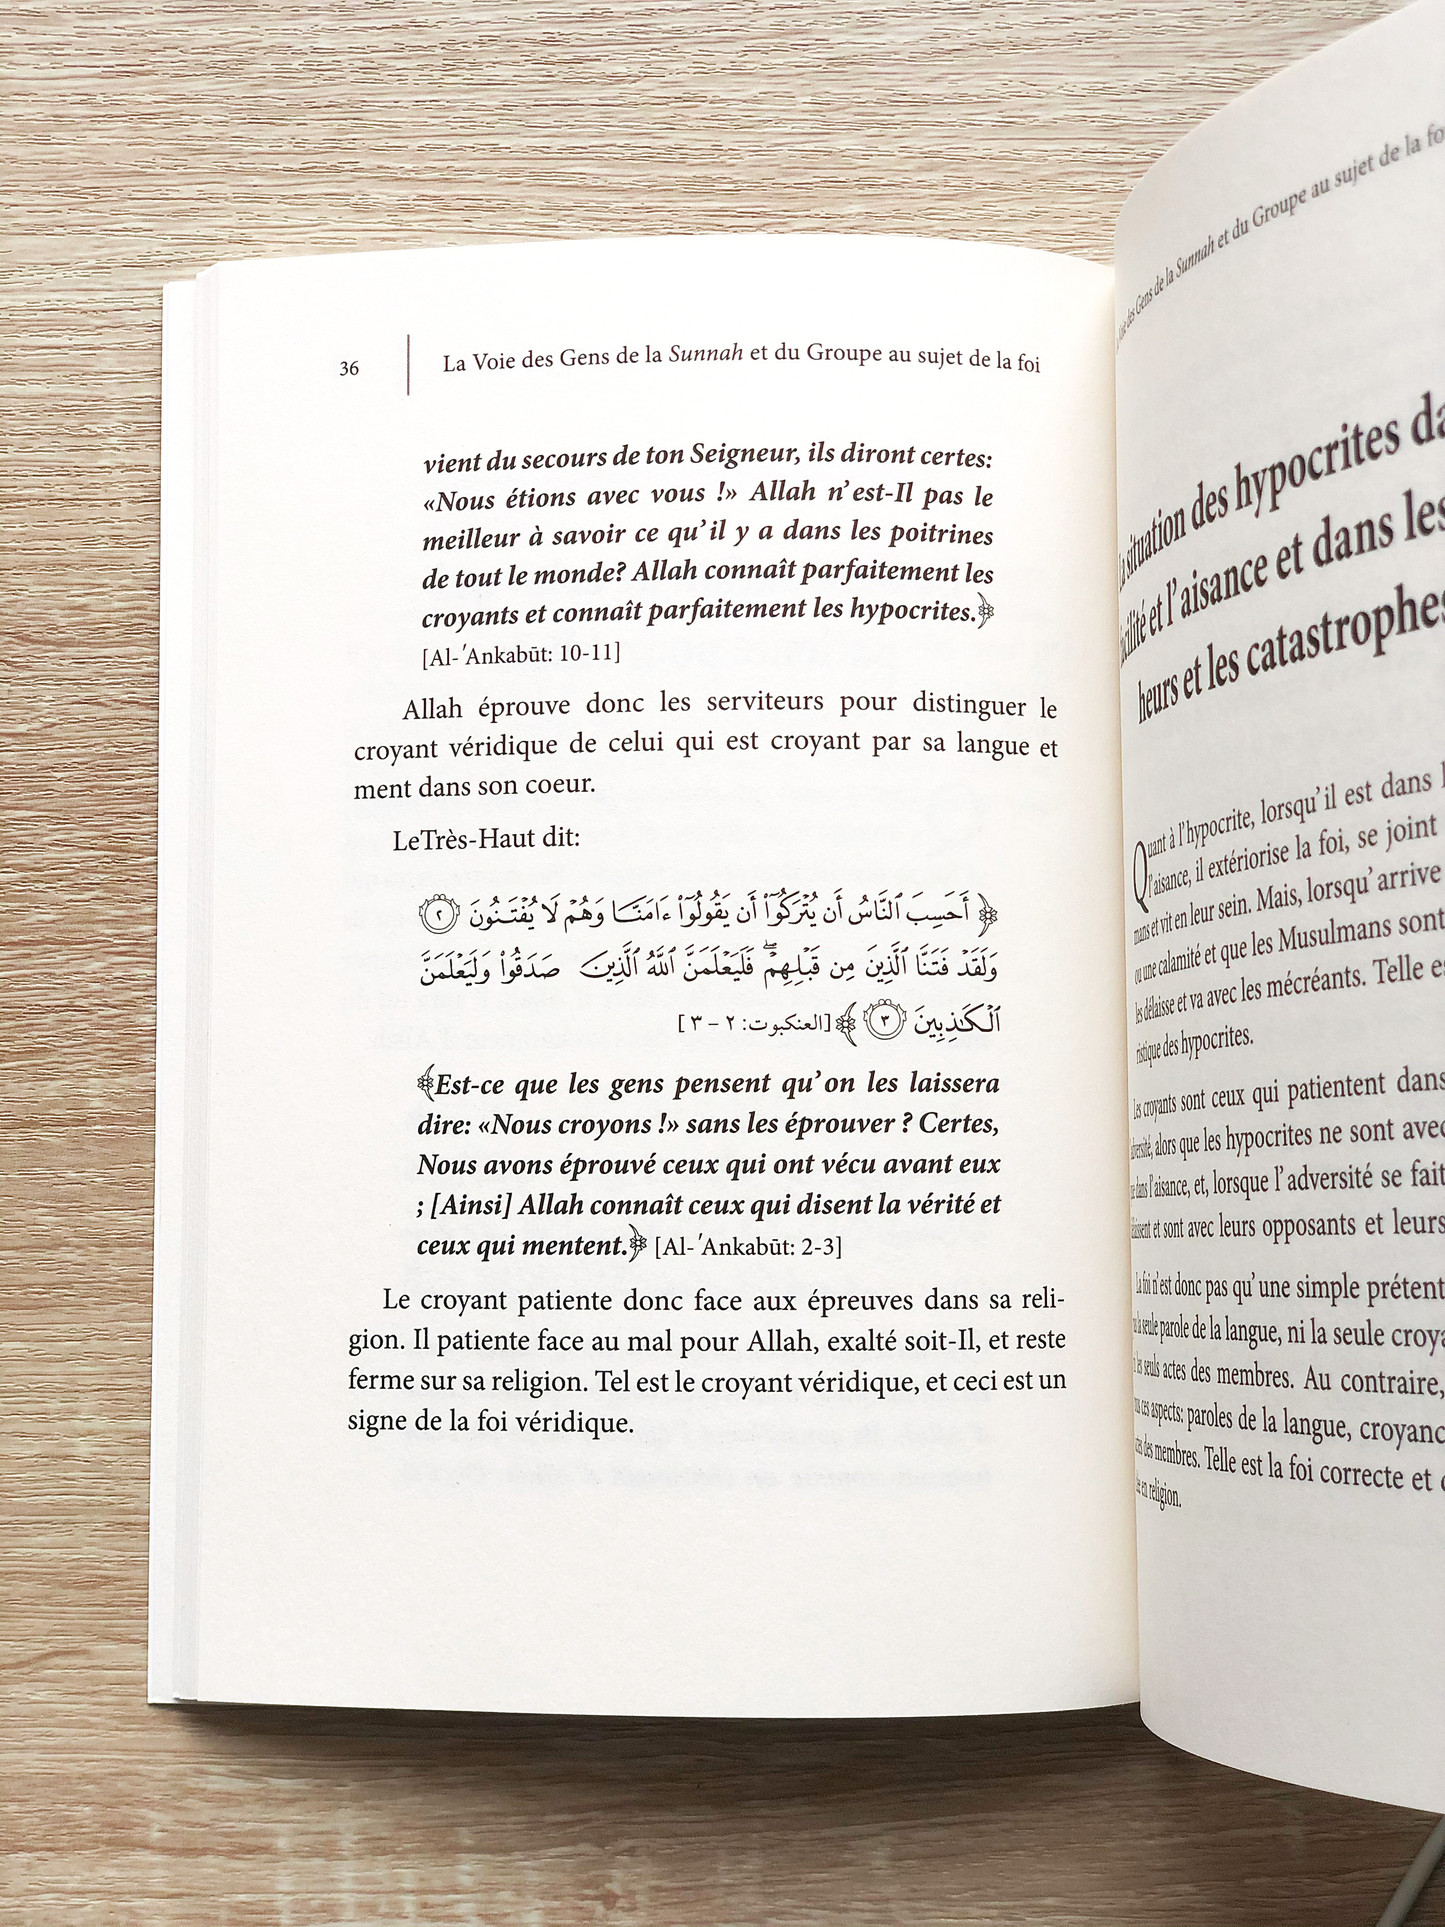 36
La Voie des Gens de la Sunnah et du Groupe au sujet de la foi
vient du secours de ton Seigneur, ils diront certes:
«Nous étions avec vous !» Allah n'est-Il pas le
meilleur à savoir ce qu'il y a dans les poitrines
de tout le monde? Allah connaît parfaitement les
croyants et connaît parfaitement les hypocrites.﴾
[Al-ʹAnkabūt: 10-11]
Allah éprouve donc les serviteurs pour distinguer le
croyant véridique de celui qui est croyant par sa langue et
ment dans son coeur.
LeTrès-Haut dit:
﴿ أَحَسِبَ ٱلنَّاسُ أَن يُتۡرَكُوٓاْ أَن يَقُولُوٓاْ ءَامَنَّا وَهُمۡ لَا يُفۡتَنُونَ ٢
وَلَقَدۡ فَتَنَّا ٱلَّذِينَ مِن قَبۡلِهِمۡۖ فَلَيَعۡلَمَنَّ ٱللَّهُ ٱلَّذِينَ صَدَقُواْ وَلَيَعۡلَمَنَّ
ٱلۡكَٰذِبِينَ ٣ ﴾ [العنكبوت: ٢ – ٣ ]
﴿Est-ce que les gens pensent qu'on les laissera
dire: «Nous croyons !» sans les éprouver ? Certes,
Nous avons éprouvé ceux qui ont vécu avant eux
; [Ainsi] Allah connaît ceux qui disent la vérité et
ceux qui mentent.﴾ [Al-ʹAnkabūt: 2-3]
Le croyant patiente donc face aux épreuves dans sa reli-
gion. Il patiente face au mal pour Allah, exalté soit-Il, et reste
ferme sur sa religion. Tel est le croyant véridique, et ceci est un
signe de la foi véridique.
des Gens de la Sunnah et du Groupe au sujet de la
situation des hypocrites
et l'aisance et dans les
heurs et les catastrophes
Quant à l'hypocrite, lorsqu'il est dans
l'aisance, il extériorise la foi, se joint
mans et vit en leur sein. Mais, lorsqu'arrive
ou une calamité et que les Musulmans sont
les délaisse et va avec les mécréants. Telle
ristique des hypocrites.
Les croyants sont ceux qui patientent dans
alors que les hypocrites ne sont avec
dans l'aisance, et, lorsque l'adversité se fait
et sont avec leurs opposants et leurs
La foi n'est donc pas qu'une simple
la seule parole de la langue, ni la seule
les seuls actes des membres. Au contraire,
ces aspects: paroles de la langue,
des membres. Telle est la foi correcte et
en religion.